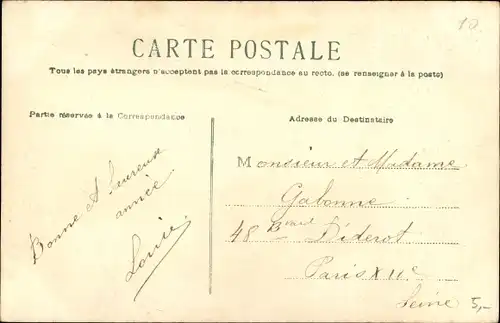 10
CARTE POSTALE
Tous les pays étrangers n'acceptent pas la correspondance au recto. (se renseigner à la poste)
Partie réservée à la Correspondance
Adresse du Destinataire
Bonne et heureuse
année
Louise
Monsieur et Madame
Galonne
48 Bvard Diderot
Paris XIIe
Seine
5,-